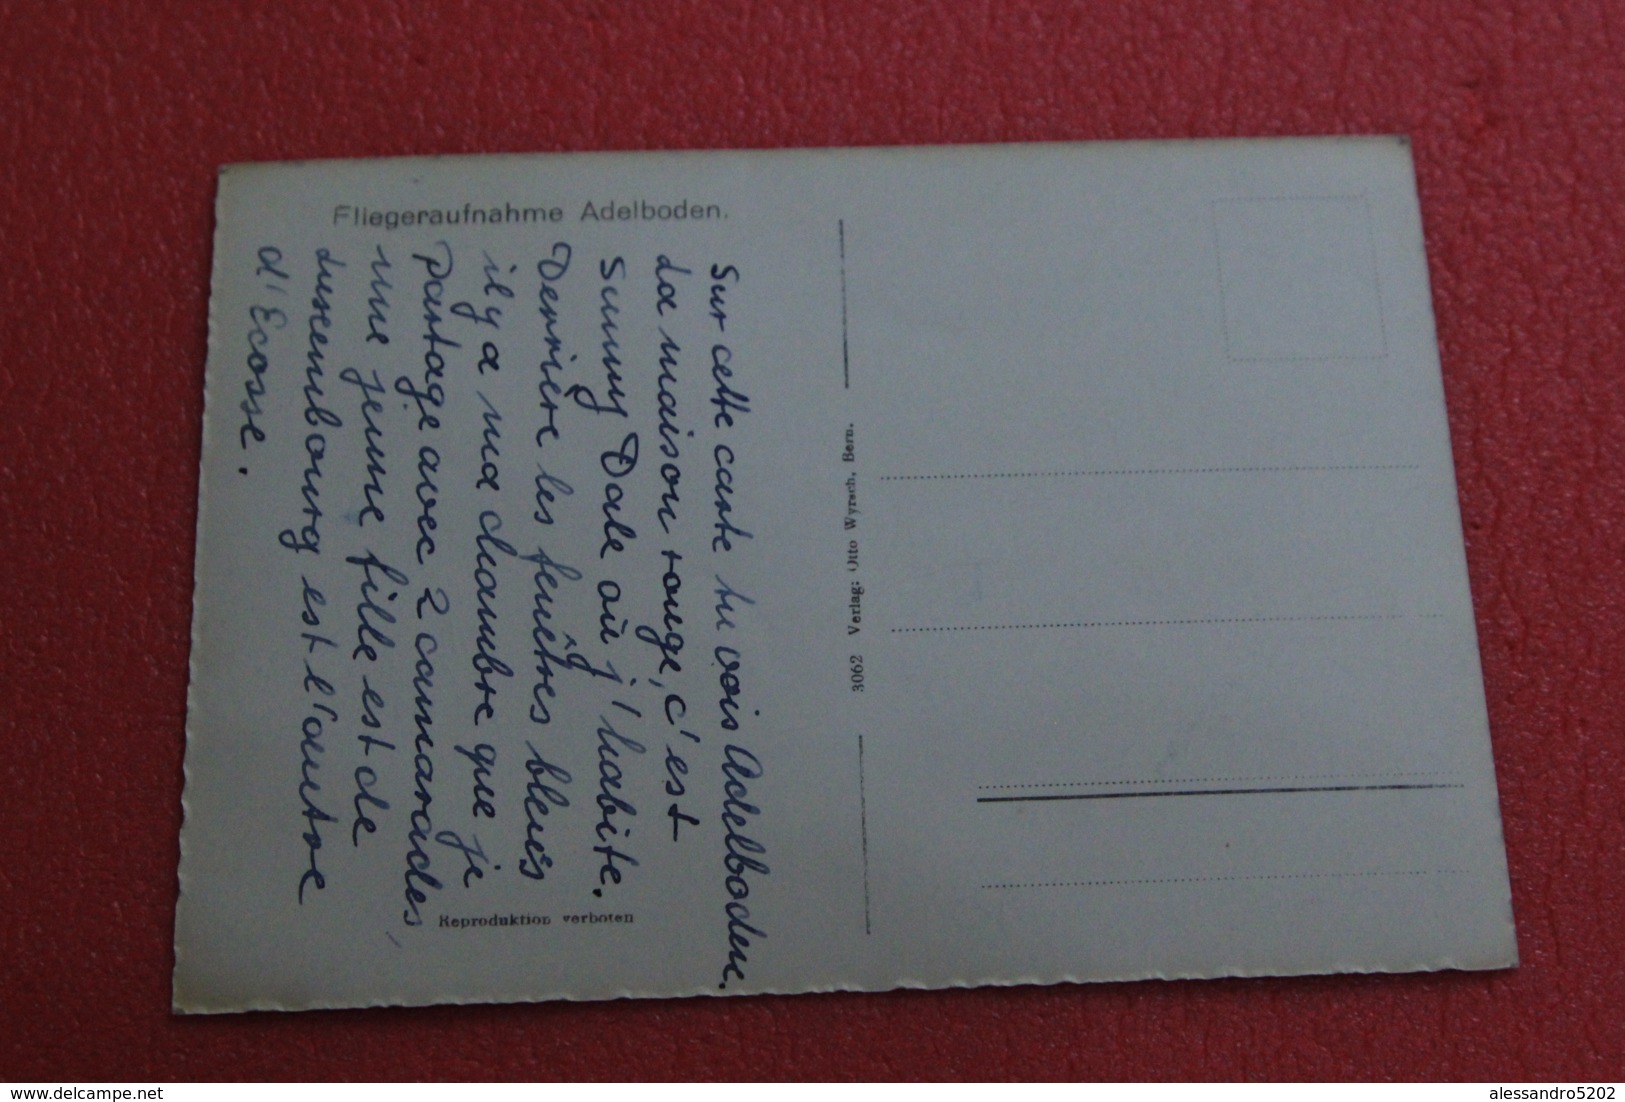 Fliegeraufnahme Adelboden.
Sur cette carte tu vois Adelboden.
La maison rouge, c'est
Sunny Dale où j'habite.
Derrière les fenêtres bleues
il y a ma chambre que je
partage avec 2 camarades,
une jeune fille est de
Luxembourg est l'autre
d'Ecosse.
Reproduktion verboten
3062 Verlag: Otto Wyrsch, Bern.
delcampe.net
alessandro5202